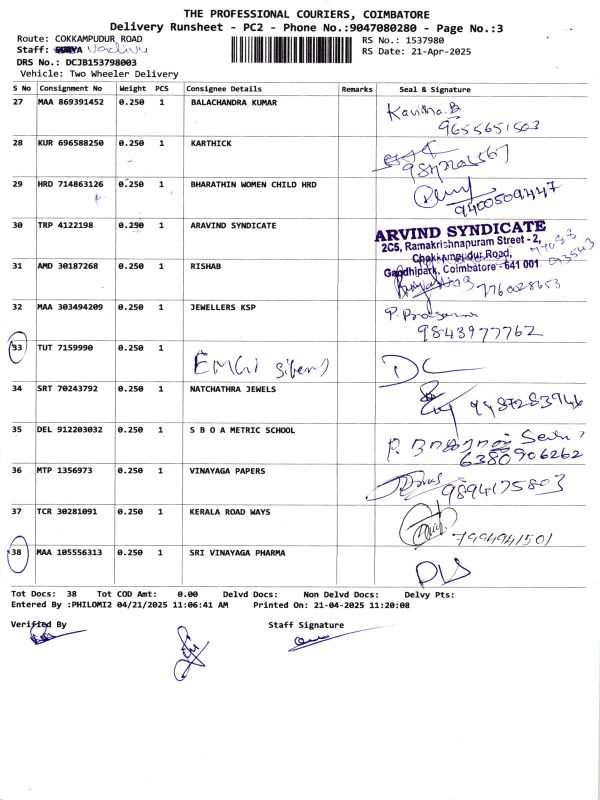 THE PROFESSIONAL COURIERS, COIMBATORE
Delivery Runsheet - PC2 - Phone No.:9047080280 - Page No.:3
Route: COKKAMPUDUR ROAD
RS No.: 1537980
Staff: SURYA Vadivu
RS Date: 21-Apr-2025
DRS No.: DCJB153798003
Vehicle: Two Wheeler Delivery
S No Consignment No Weight PCS Consignee Details Remarks Seal & Signature
27 MAA 869391452 0.250 1 BALACHANDRA KUMAR Kavitha.B
9655651503
28 KUR 696588250 0.250 1 KARTHICK
29 HRD 714863126 0.250 1 BHARATHIN WOMEN CHILD HRD
9400509447
30 TRP 4122198 0.250 1 ARAVIND SYNDICATE
ARVIND SYNDICATE
2C5, Ramakrishnapuram Street - 2,
Chokkampudur Road,
Gandhipark, Coimbatore - 641 001
31 AMD 30187268 0.250 1 RISHAB
7760028653
32 MAA 303494209 0.250 1 JEWELLERS KSP
9843977762
33 TUT 7159990 0.250 1
DC
34 SRT 70243792 0.250 1 NATCHATHRA JEWELS
9487283946
35 DEL 912203032 0.250 1 S B O A METRIC SCHOOL
6380906262
36 MTP 1356973 0.250 1 VINAYAGA PAPERS
9894175803
37 TCR 30281091 0.250 1 KERALA ROAD WAYS
7994941501
38 MAA 105556313 0.250 1 SRI VINAYAGA PHARMA
Tot Docs: 38 Tot COD Amt: 0.00 Delvd Docs: Non Delvd Docs: Delvy Pts:
Entered By :PHILOMI2 04/21/2025 11:06:41 AM Printed On: 21-04-2025 11:20:08
Verified By Staff Signature